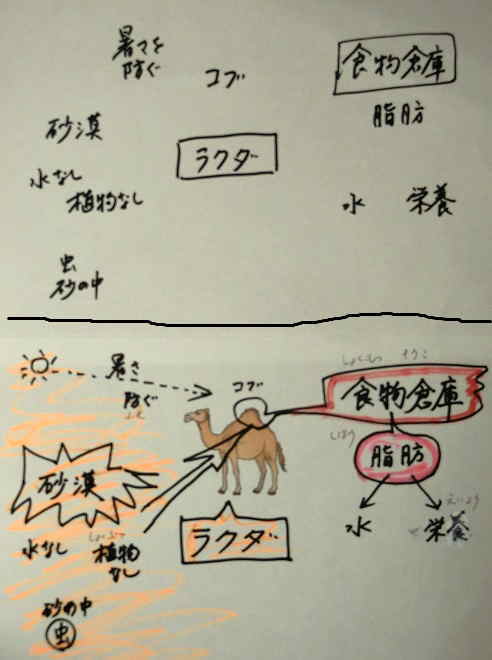 暑さを
防ぐ
コブ
食物倉庫
脂肪
砂漠
ラクダ
水なし
植物なし
水
栄養
虫
砂の中
暑さ
防ぐ
ふせ
コブ
しょくもつ そうこ
食物倉庫
しぼう
脂肪
砂漠
水
えいよう
栄養
ラクダ
水なし
しょくぶつ
植物
なし
砂の中
虫